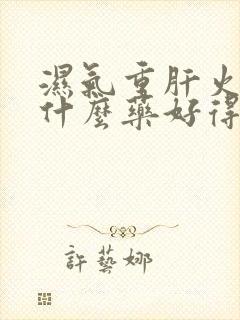 濕氣重肝火
什麼藥好得
許藝娜